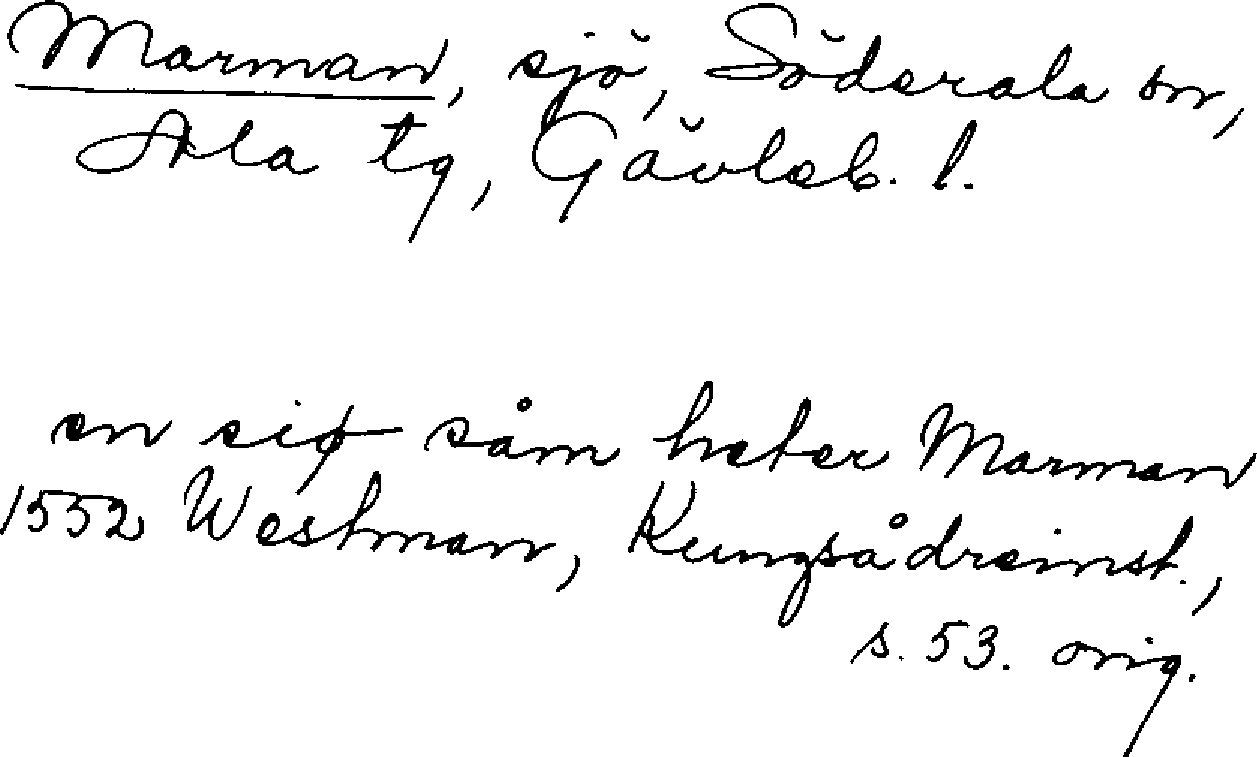 Marman, sjö, Söderala sn,
Ala tg, Gävleb. l.
en siø såm heter Marman
1552 Westman, Kungsådreinst.,
s. 53. orig.